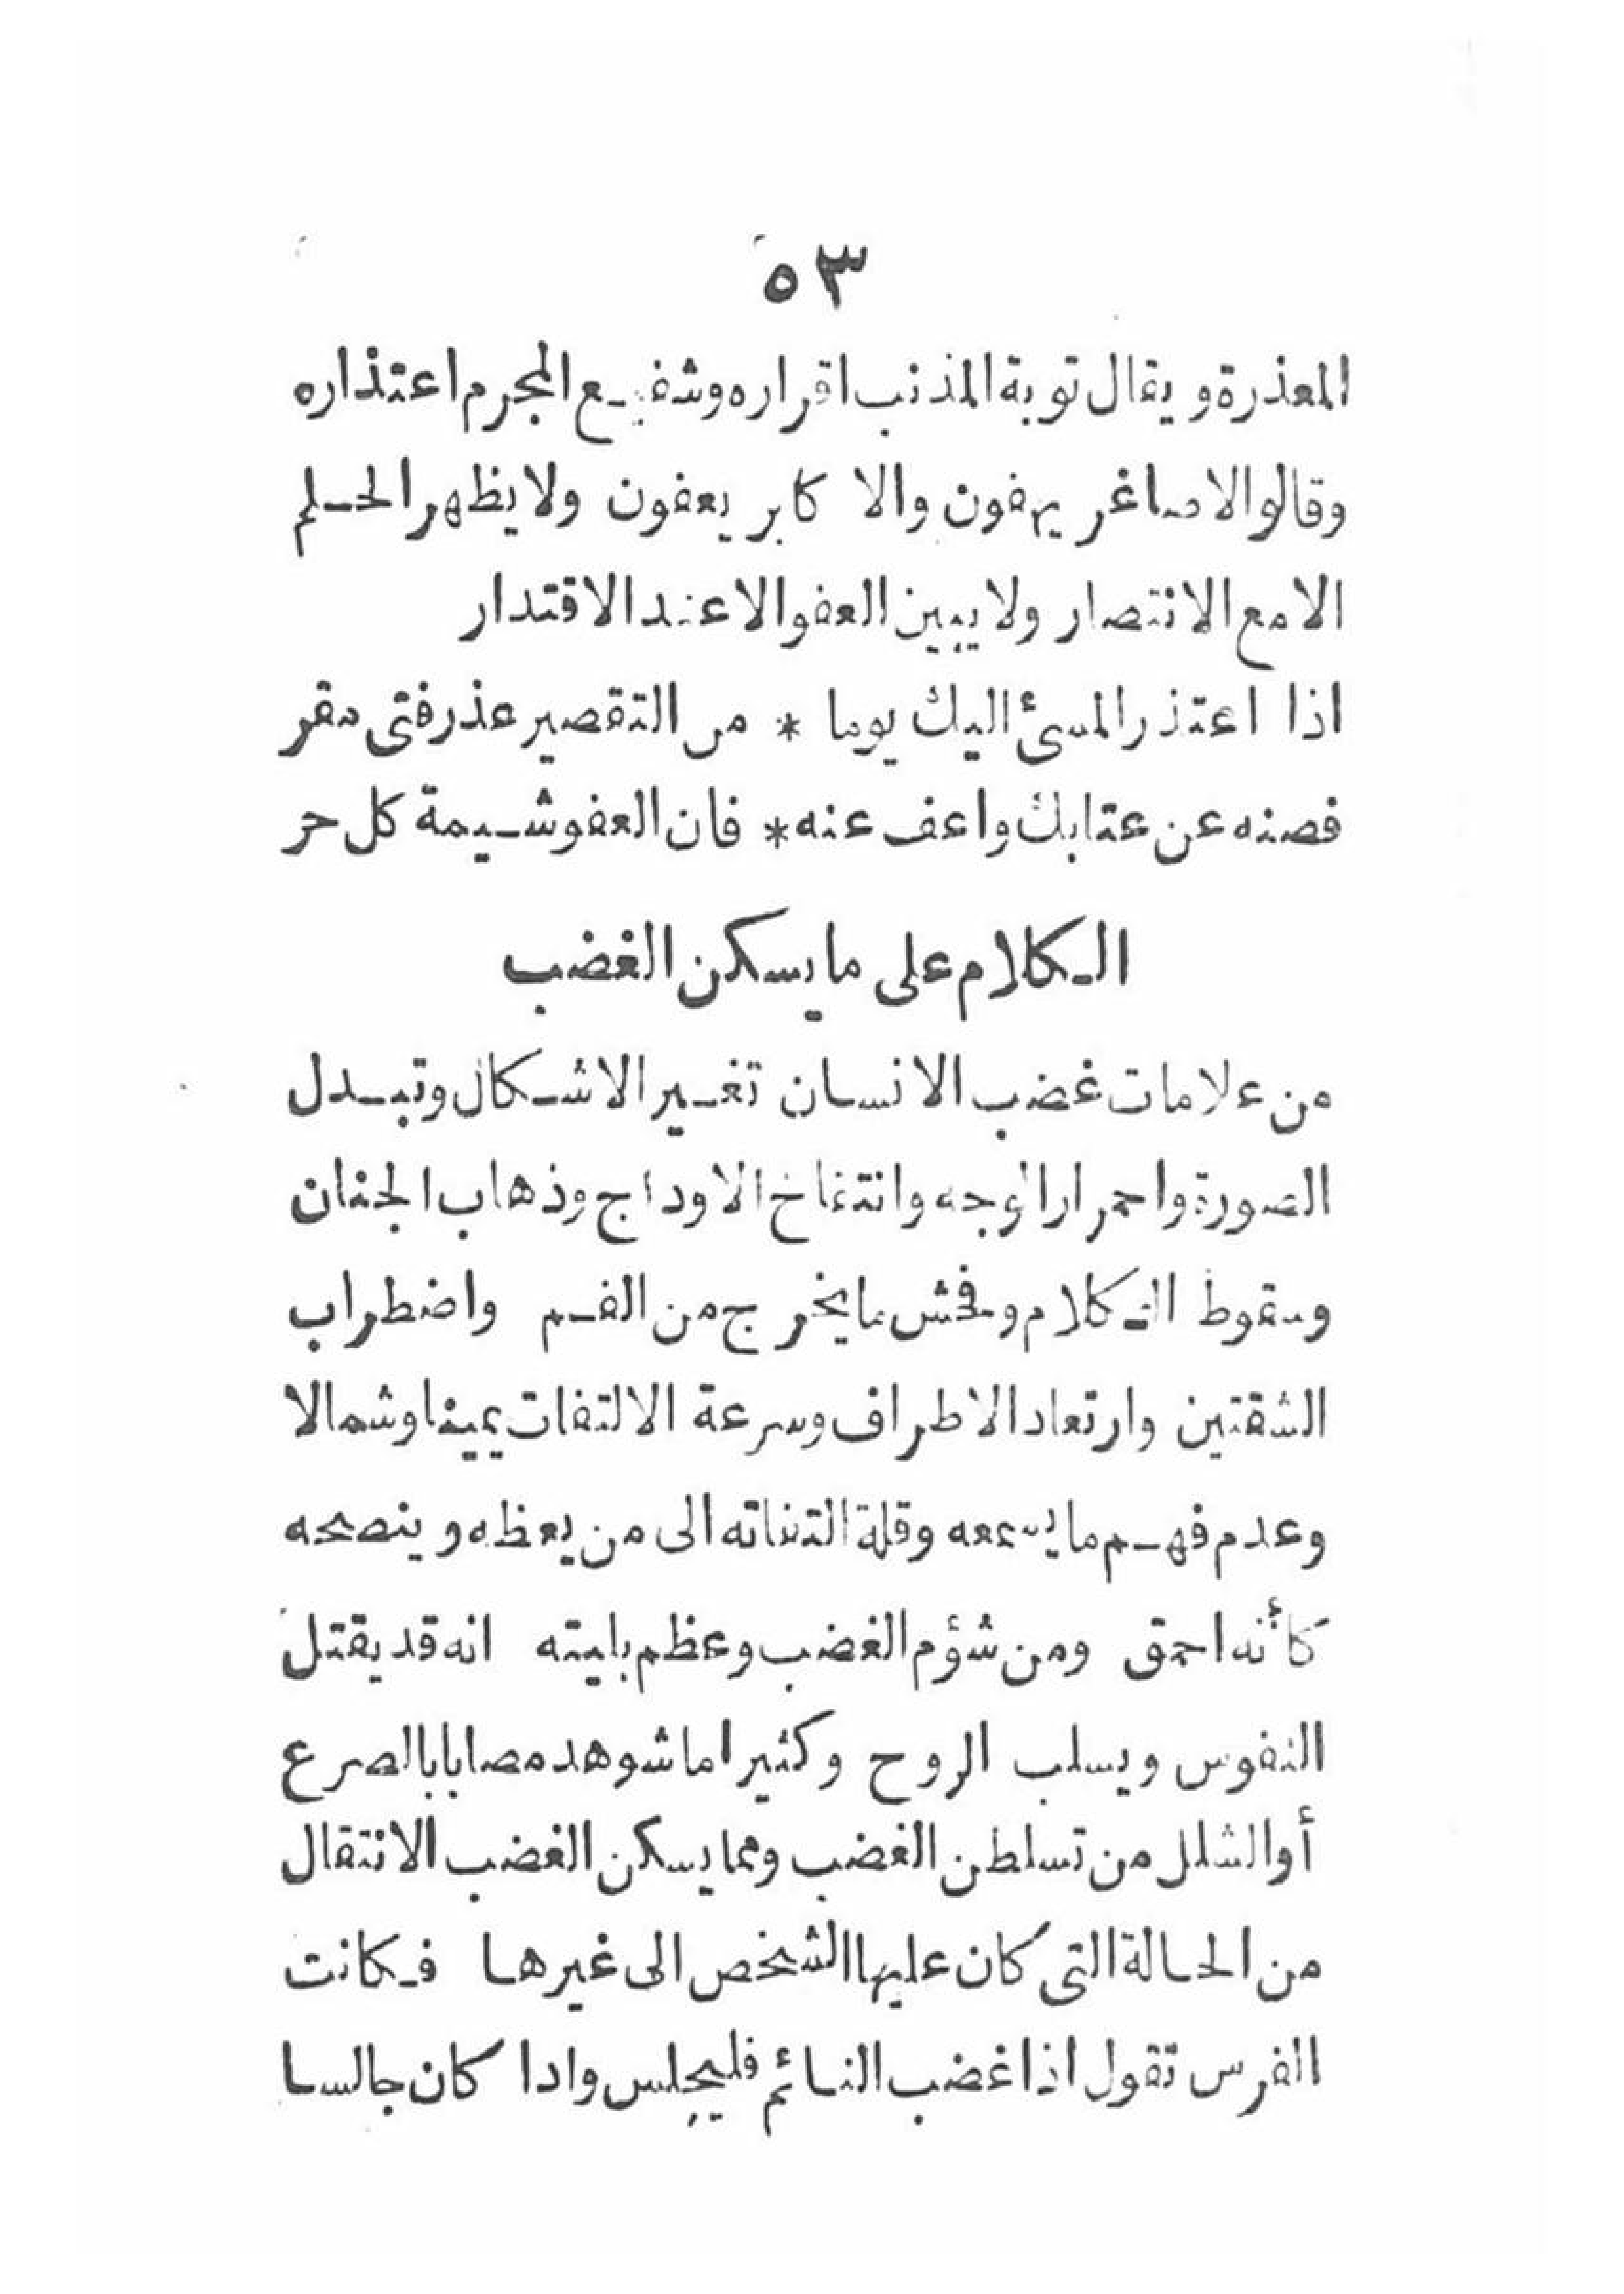 ٥٣
المعذرة ويقال توبة المذنب اقراره وشفيع المجرم اعتذاره
وقالوا الاصاغر يهفون والا كابر يعفون ولا يظهر الحلم
الامع الانتصار ولا يبين العفو الا عند الاقتدار
اذا اعتذر المسئ اليك يوما * من التقصير عذر فتى مقر
فصنه عن عتابك واعف عنه * فان العفو شيمة كل حر
الكلام على ما يسكن الغضب
من علامات غضب الانسان تغيير الاشكال وتبدل
الصورة واحمرار الوجه وانتفاخ الاوداج وذهاب الجنان
وسقوط الكلام وفحش ما يخرج من الفم واضطراب
الشقتين وارتعاد الاطراف وسرعة الالتفات يمينا وشمالا
وعدم فهم ما يسمعه وقلة التفاته الى من يعظه وينصحه
كأنه احمق ومن شؤم الغضب وعظم بليته انه قد يقتل
النفوس ويسلب الروح وكثيرا ما شوهد مصابا بالصرع
أو الشلل من تسلطن الغضب ومما يسكن الغضب الانتقال
من الحالة التى كان عليها الشخص الى غيرها فكانت
الفرس تقول اذا غضب النائم فليجلس وادا كان جالسا